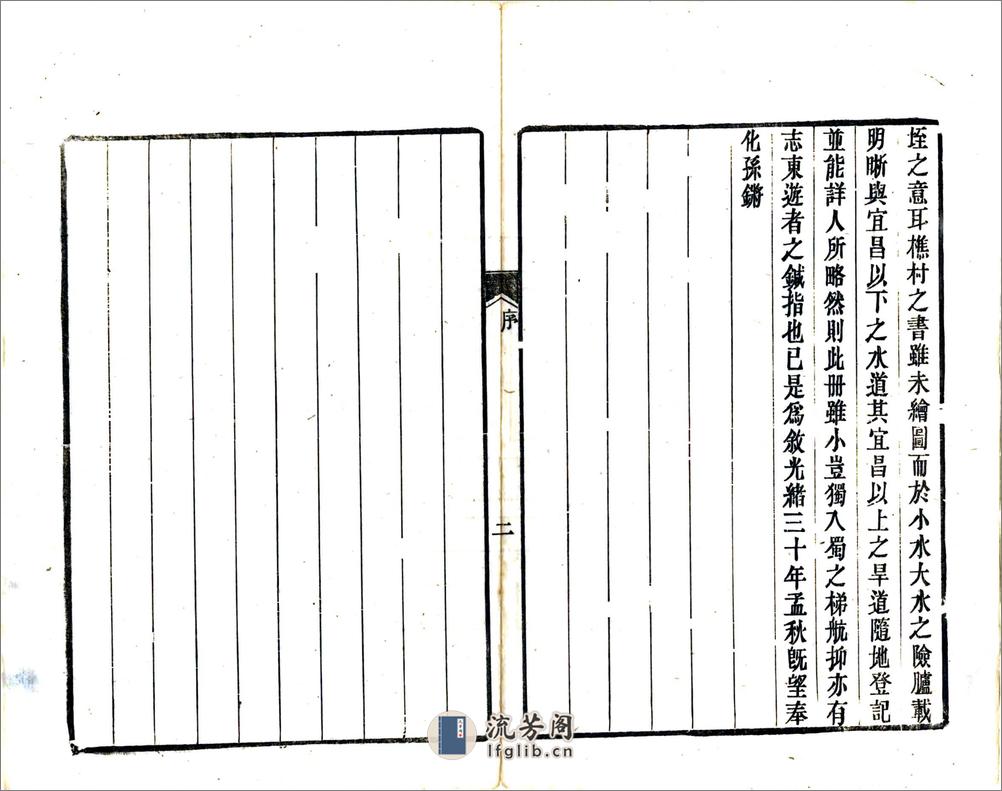 垤之意耳樵村之書雖未繪圖而於小水大水之險臚載
明晰與宜昌以下之水道其宜昌以上之旱道隨地登記
並能詳人所略然則此冊雖小豈獨入蜀之梯航抑亦有
志東遊者之鍼指也已是爲敘光緒三十年孟秋旣望奉
化孫鏘
序
二
流芳阁
lfglib.cn